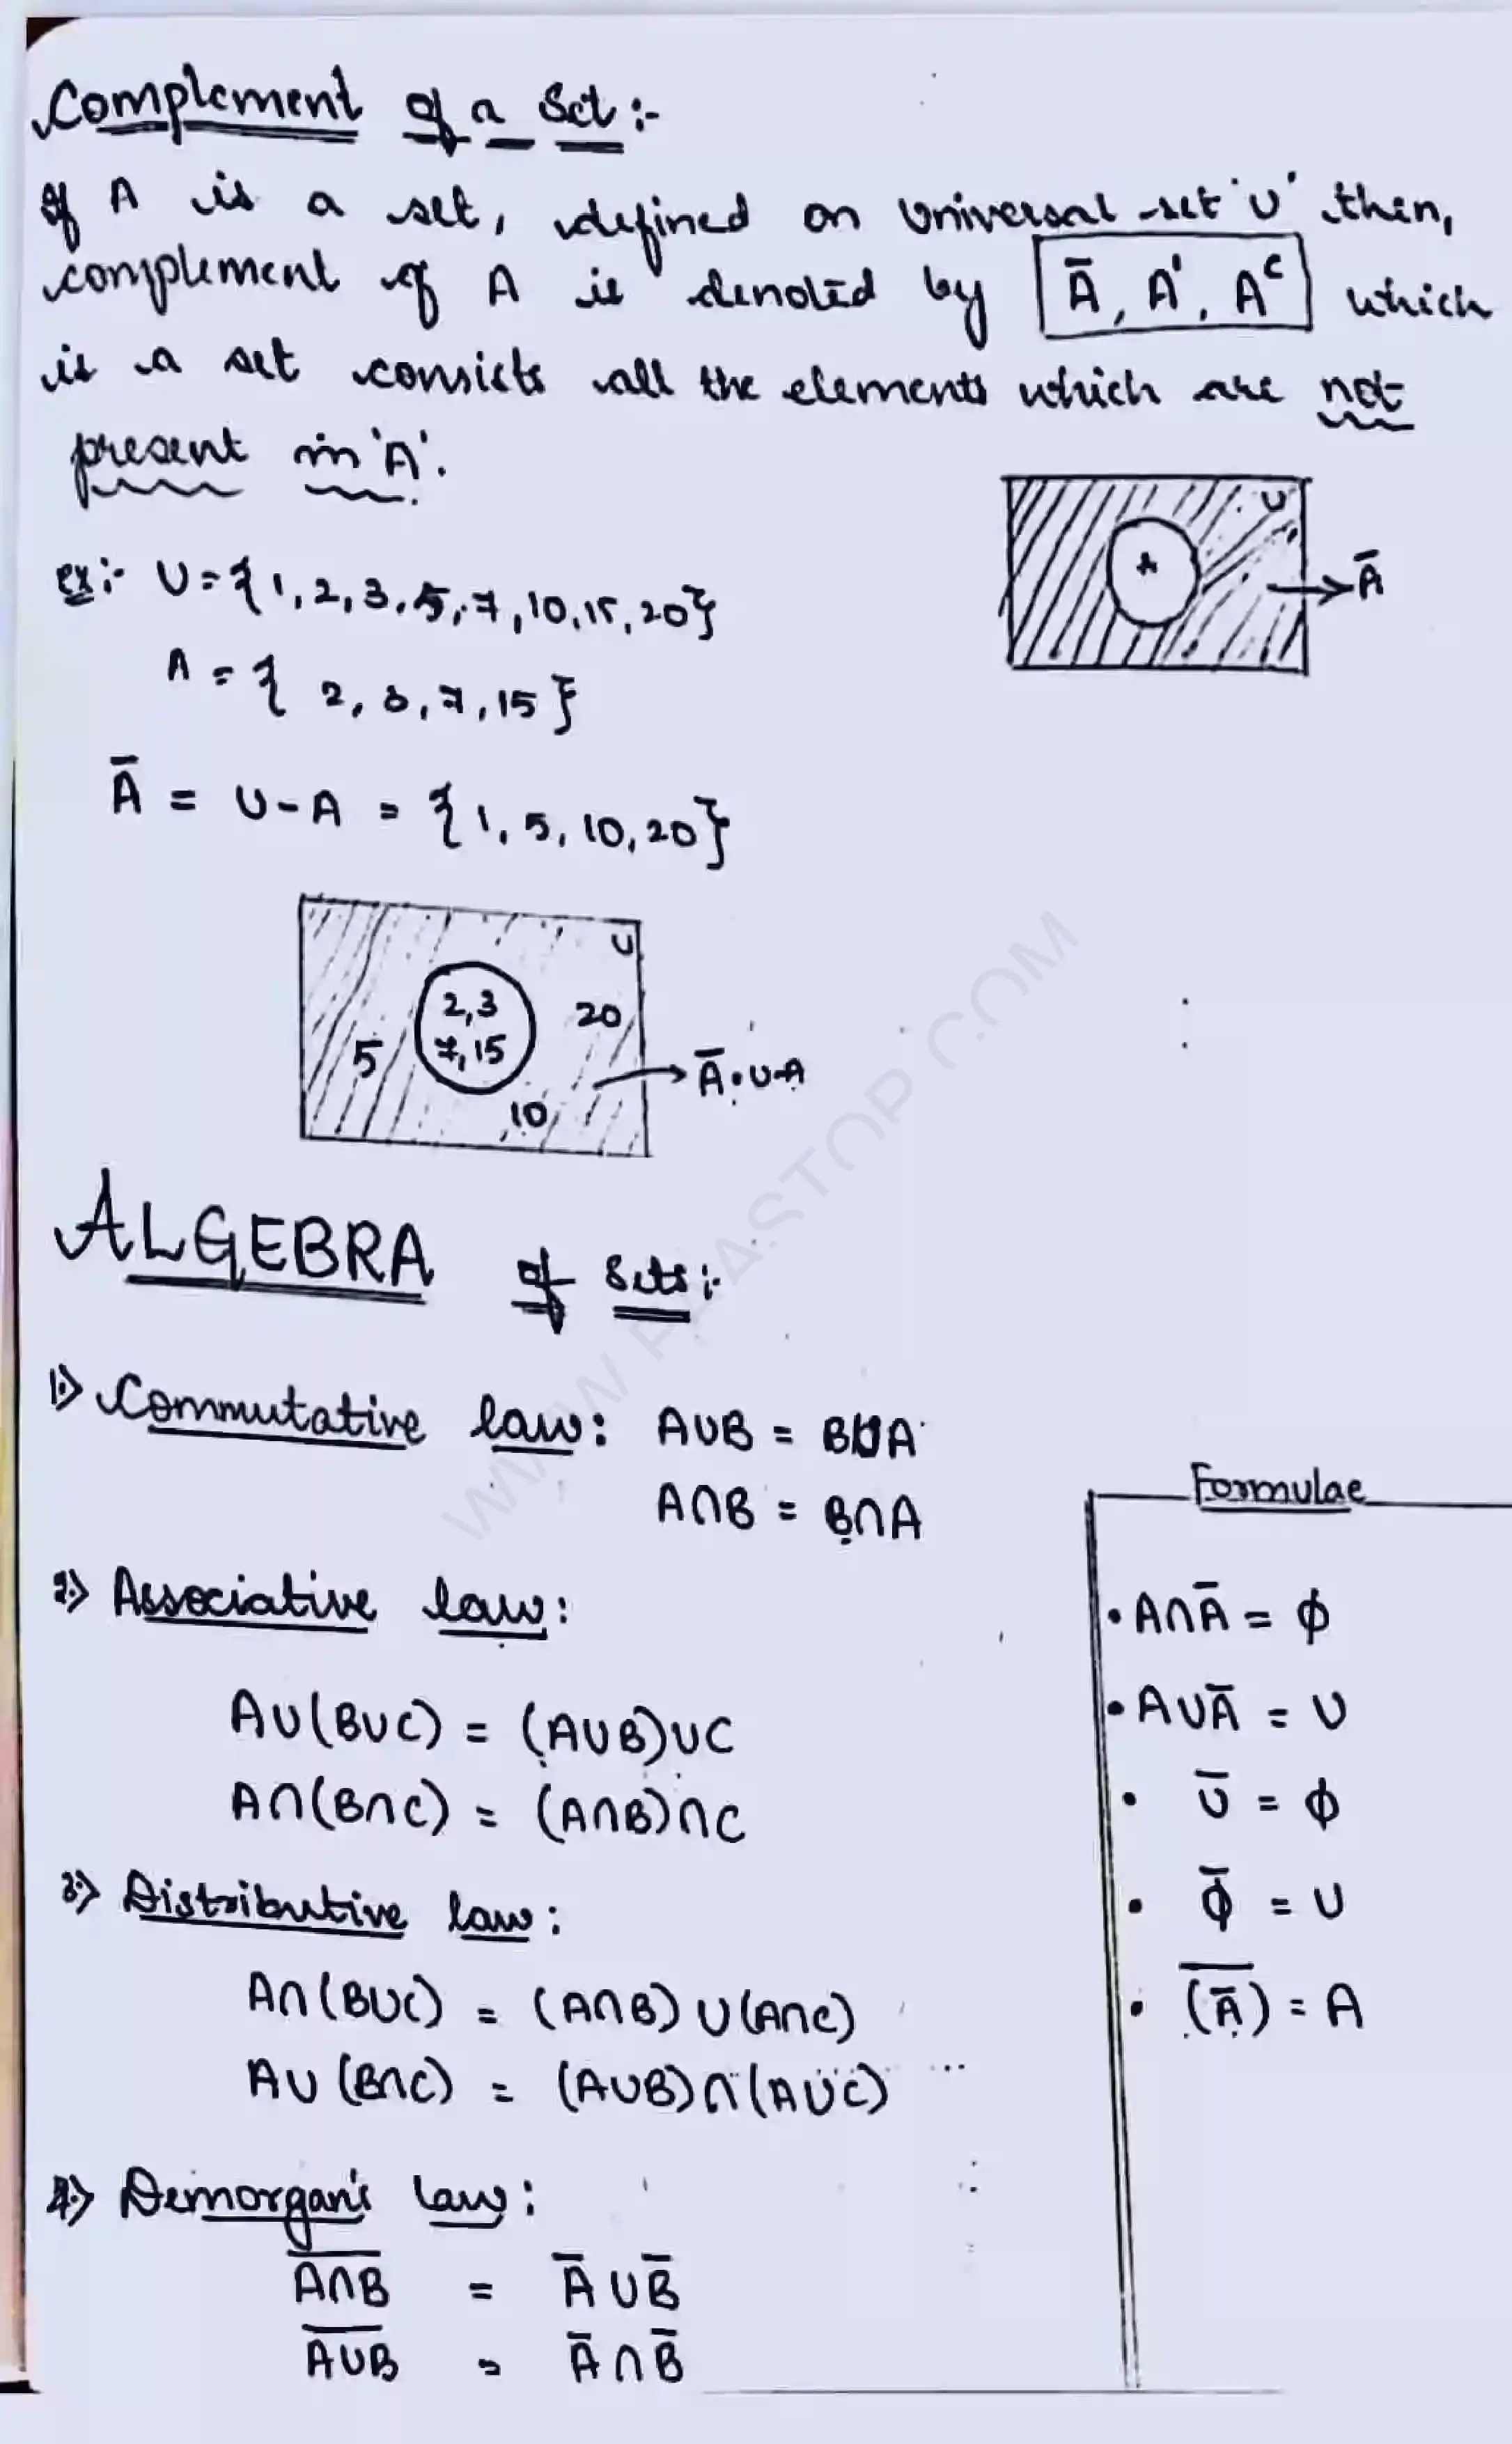 Complement of a Set :-
If A is a set, defined on Universal set 'U' then,
complement of A is denoted by Ā, A', Aᶜ which
is a set consists all the elements which are not
present in 'A'.
U
A
Ā
ex:- U = {1, 2, 3, 5, 7, 10, 15, 20}
A = { 2, 3, 7, 15 }
Ā = U - A = {1, 5, 10, 20}
U
2, 3
20
7, 15
5
Ā = U-A
10
ALGEBRA of Sets :-
1) Commutative law : A∪B = B∪A
A∩B = B∩A
2) Associative law :
A∪(B∪C) = (A∪B)∪C
A∩(B∩C) = (A∩B)∩C
3) Distributive law :
A∩(B∪C) = (A∩B) ∪ (A∩C)
A∪(B∩C) = (A∪B) ∩ (A∪C)
4) Demorgan's law :
A̅∩̅B̅ = Ā ∪ B̅
A̅∪̅B̅ = Ā ∩ B̅
Formulae
• A∩Ā = ϕ
• A∪Ā = U
• U̅ = ϕ
• ϕ̅ = U
• (̅Ā)̅ = A